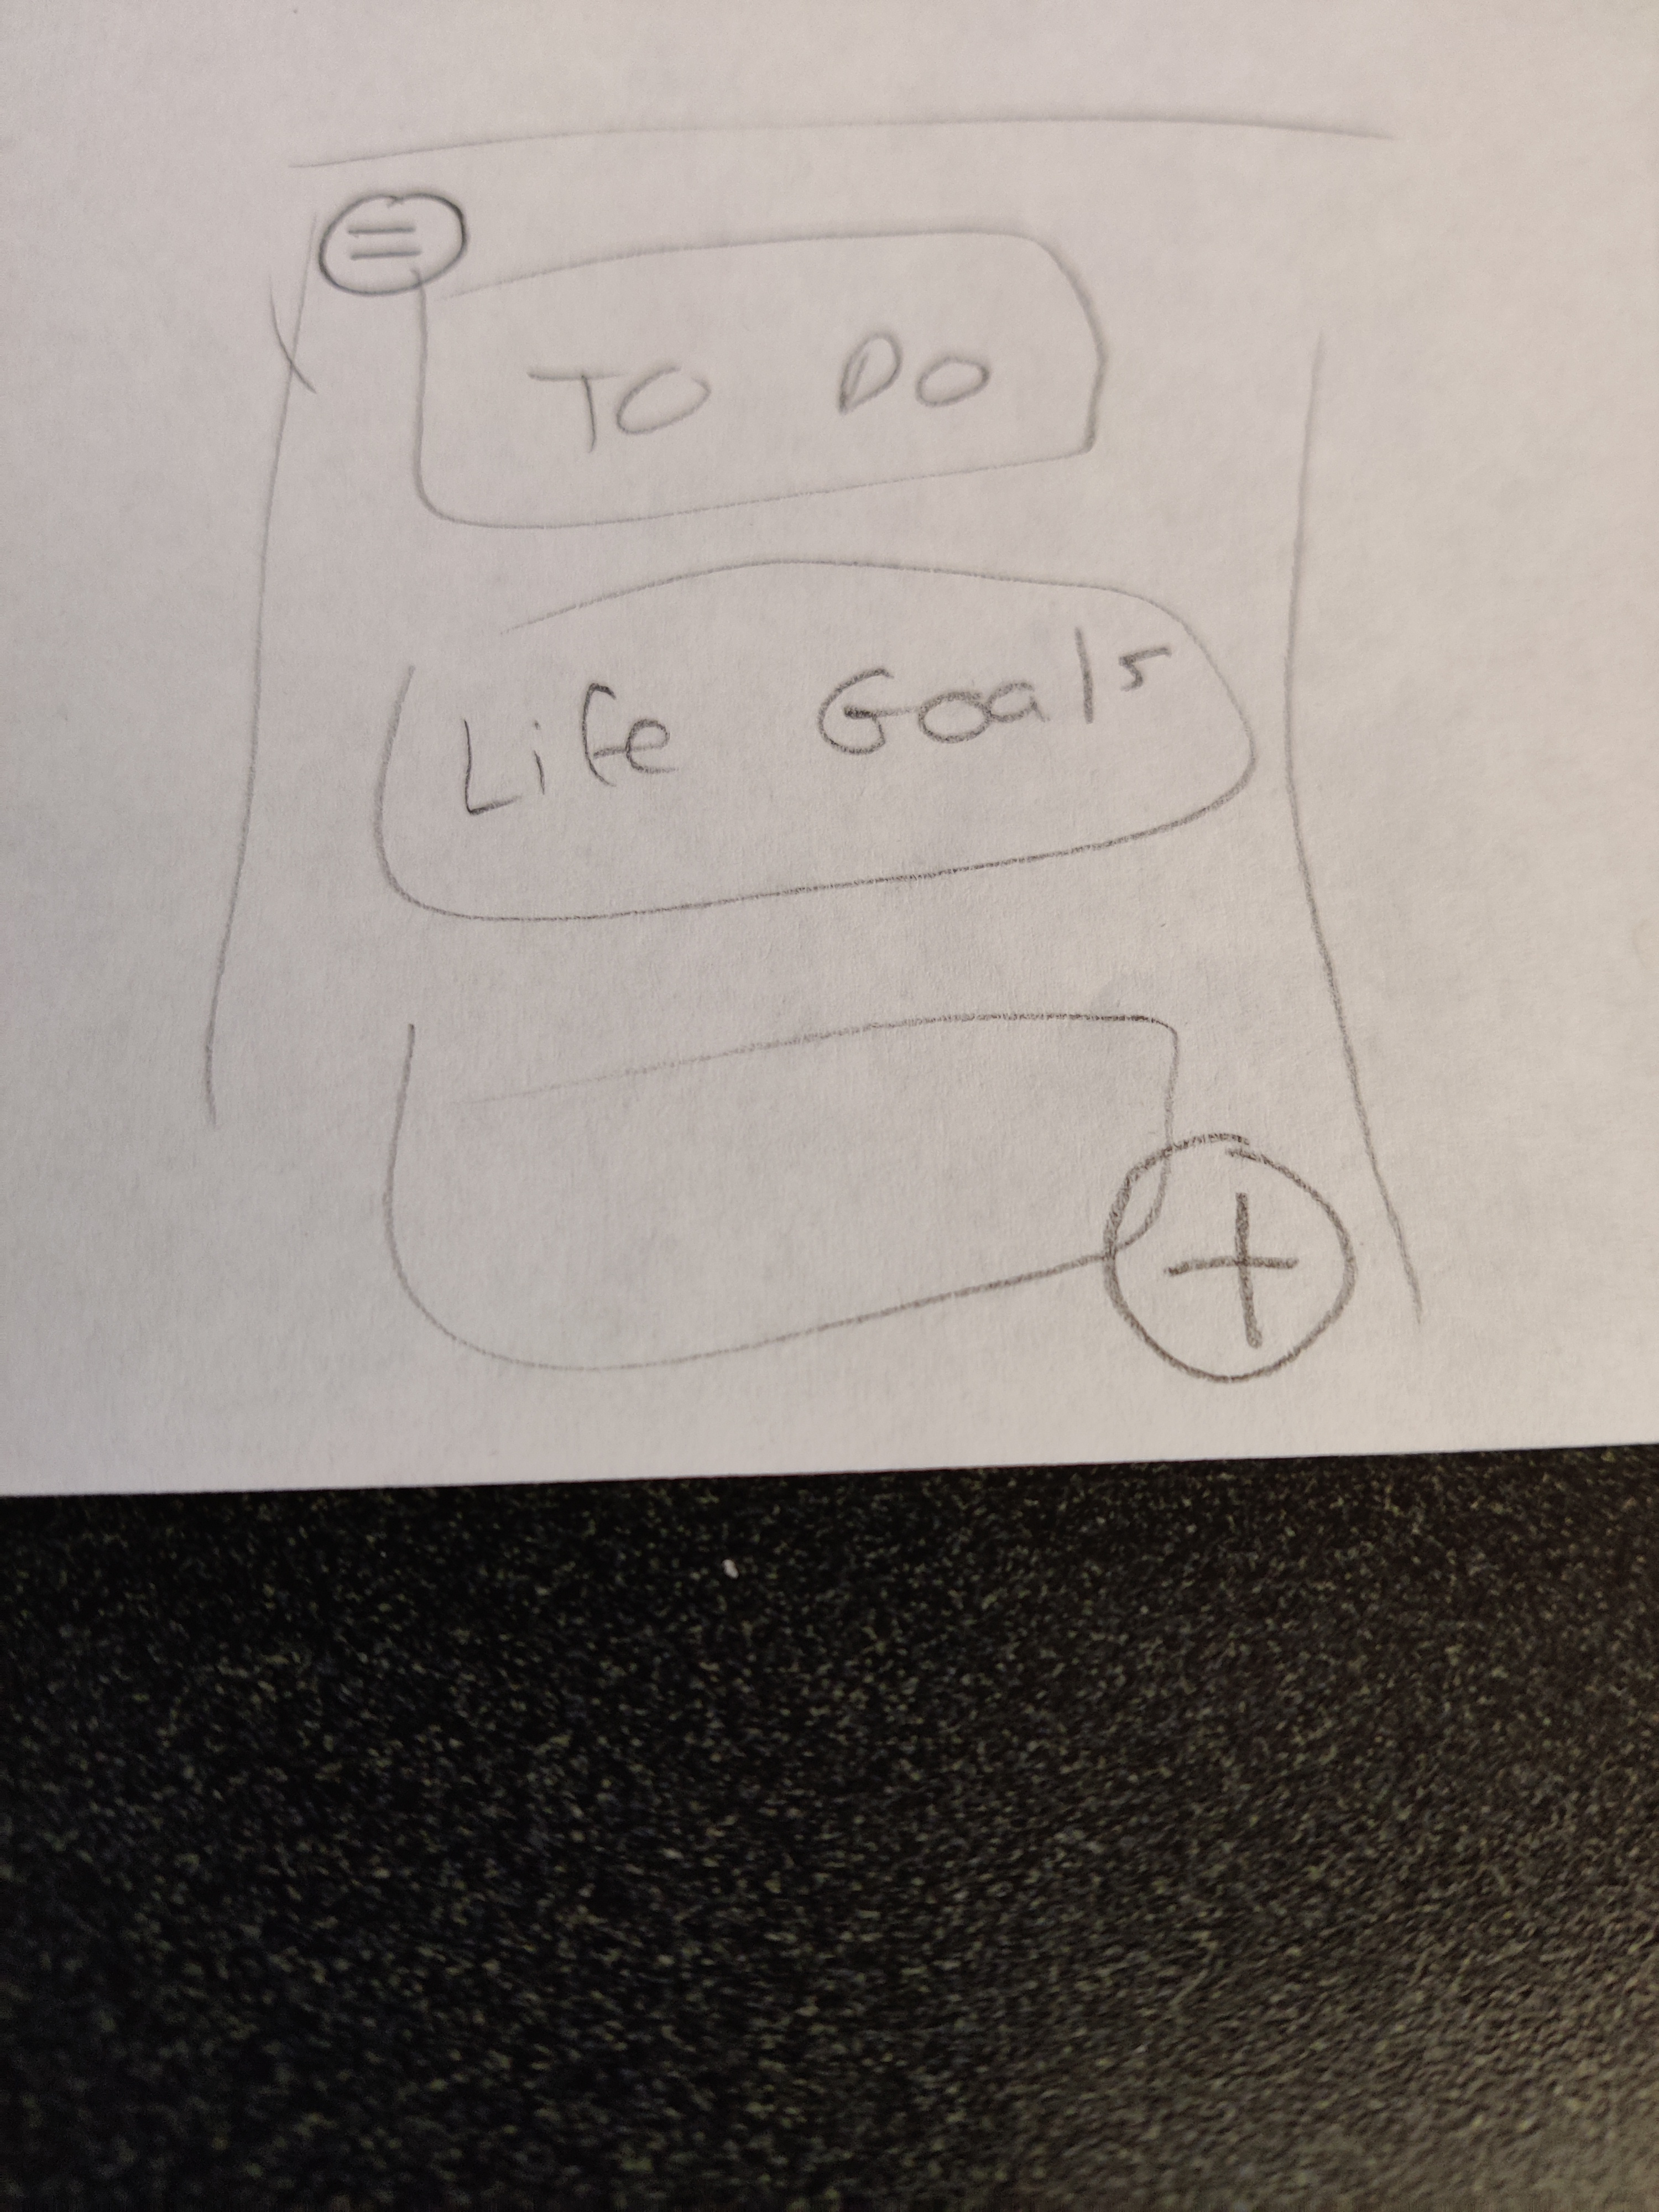 TO DO
Life Goals
+